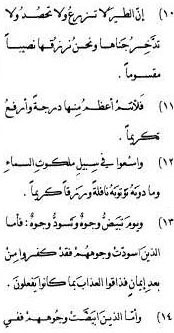 ١٠) إنّ الطير لا تزرع ولا تحصد ولا
تدّخر جَناها ونحن نرزقها نصيباً
مقسوماً .
١١) فلأنتم أعظم منها درجة وأرفع
تكريماً .
١٢) واسعوا في سبيل ملكوت السماءِ
وما دونه تؤتونه نافلة ورزقاً كريماً .
١٣) ويوم تبيضّ وجوهٌ وتسودّ وجوهٌ : فأما
الذين اسودّت وجوههم فقد كفروا من
بعد إيمانٍ فذاقوا العذاب بما كانوا يفعلون .
١٤) وأمّا الذين ابيضّت وجوههم ففي